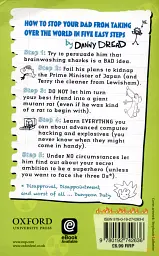 HOW TO STOP YOUR DAD FROM TAKING
OVER THE WORLD IN FIVE EASY STEPS
by DANNY DREAD
Step 1: Try to persuade him that
brainwashing sharks is a BAD idea.
Step 2: Foil his plans to kidnap
the Prime Minister of Japan (and
Terry the cleaner from Lewisham)
Step 3: DO NOT let him turn
your best friend into a giant
mutant rat (even if he was kind
of a rat to begin with).
Step 4: Learn EVERYTHING you
can about advanced computer
hacking and explosives (you
never know when they might
come in handy).
Step 5: Under NO circumstances let
him find out about your secret
ambition to be a superhero (unless
you want to face the three Ds*).
* Disapproval, Disappointment,
and worst of all ... Dungeon Duty
OXFORD
UNIVERSITY PRESS
£5.99 RRP